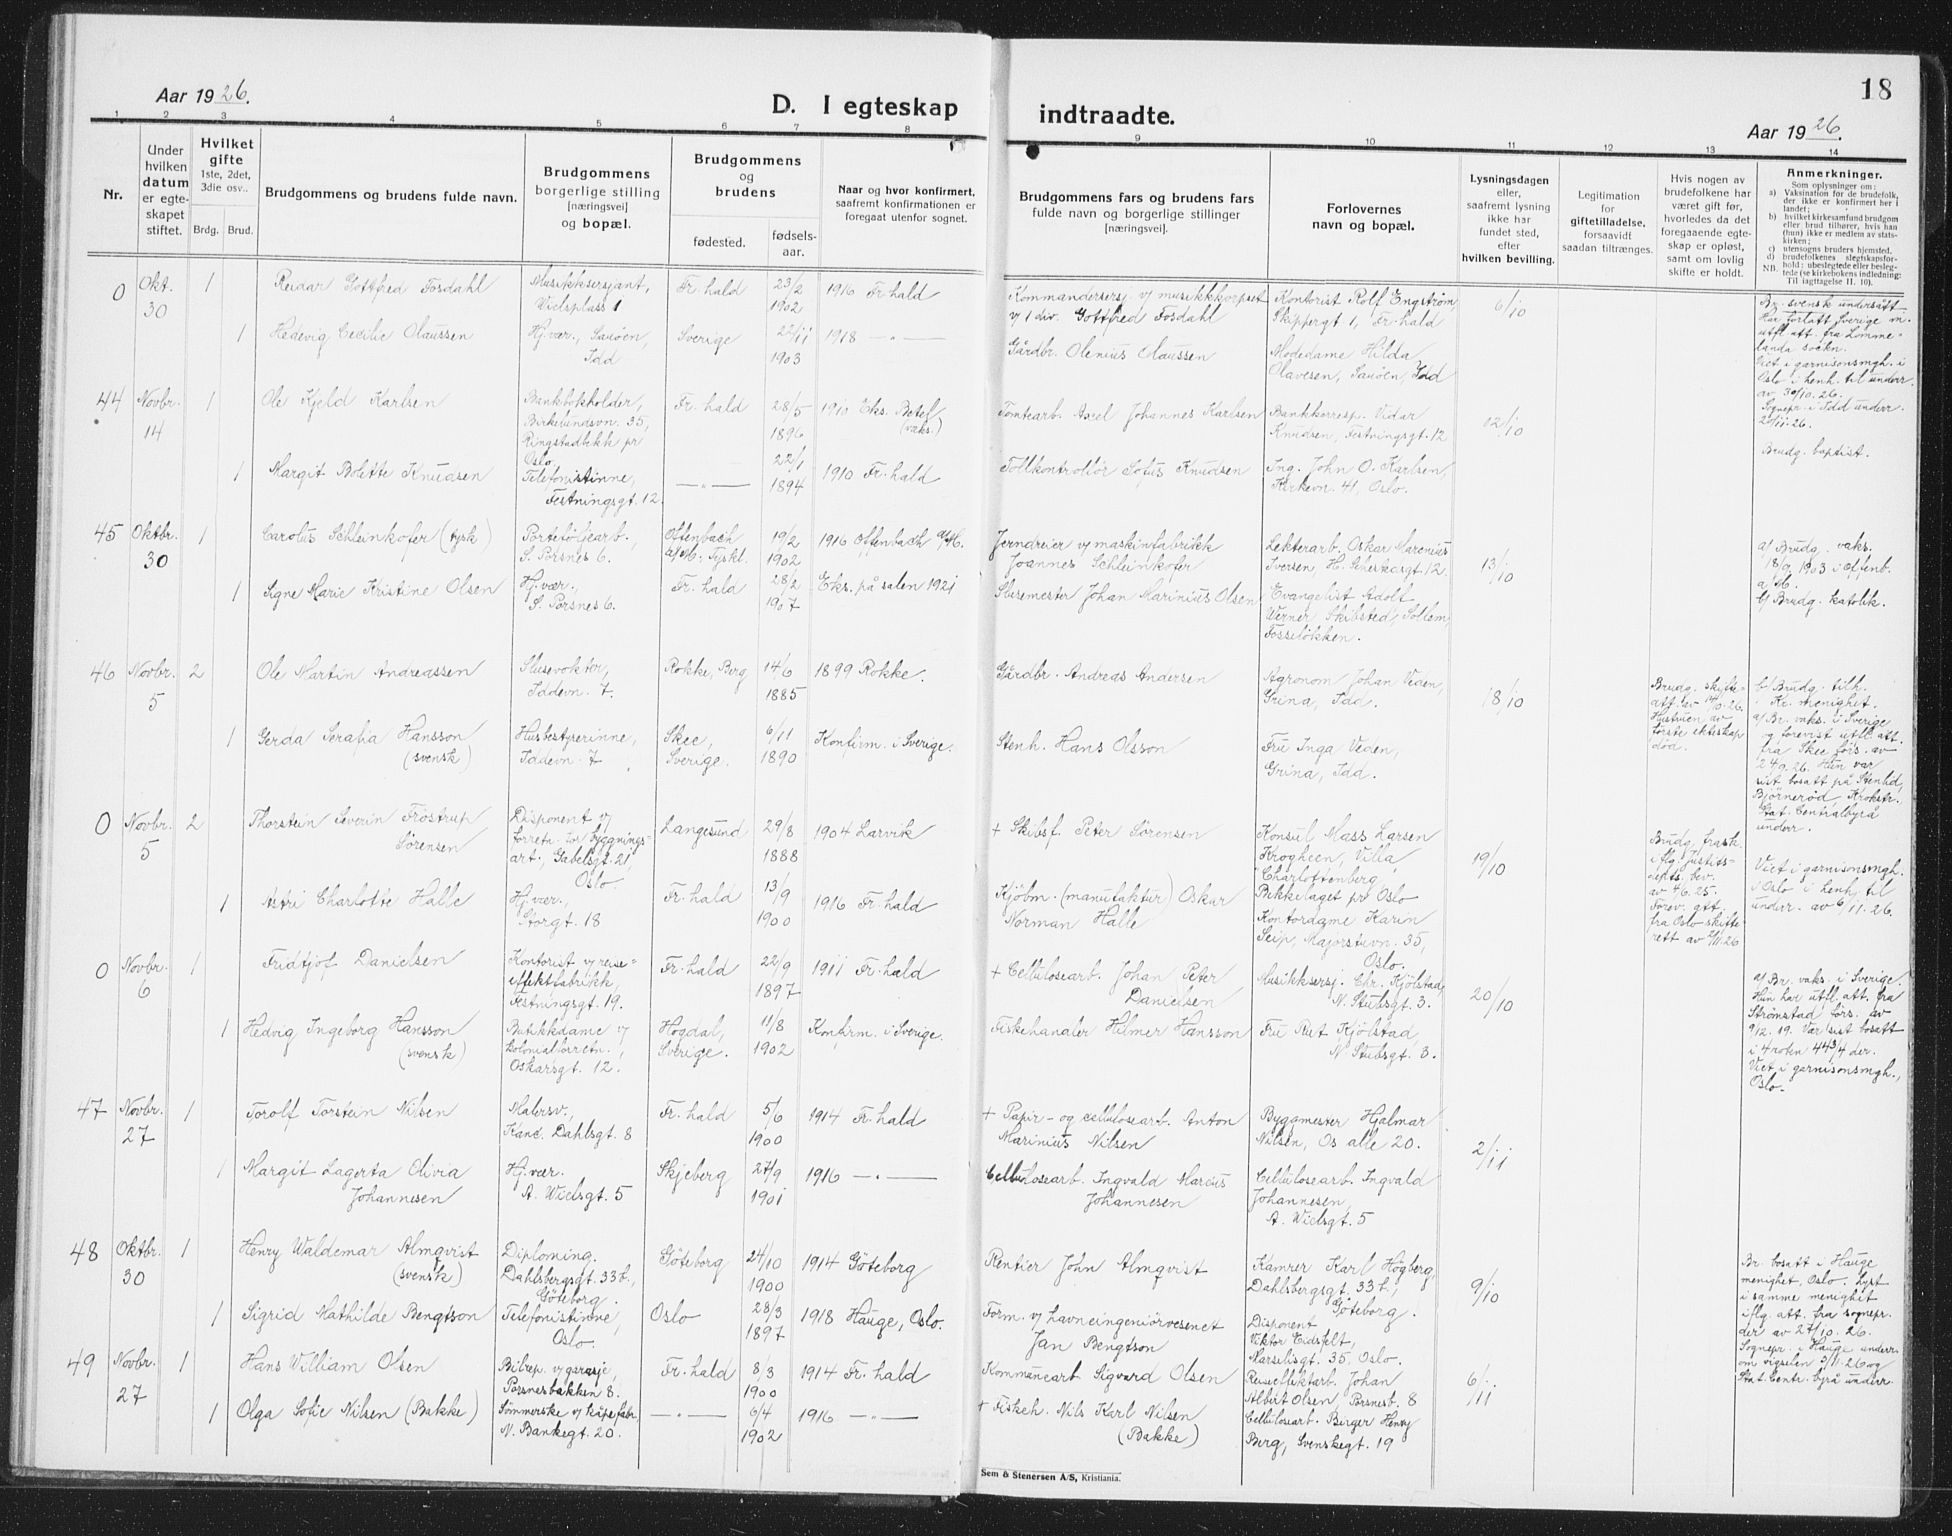 Aar 1926.
D. I egteskap indtraadte.
18
Aar 1926.
1 2 3 4 5 6 7 8 9 10 11 12 13 14
Nr.
Under
hvilken
datum
er egte-
skapet
stiftet.
Hvilket
gifte
1ste, 2det,
3die osv..
Brdg. Brud.
Brudgommens og brudens fulde navn.
Brudgommens
borgerlige stilling
[næringsvei]
og bopæl.
Brudgommens
og
brudens
fødested.
fødsels-
aar.
Naar og hvor konfirmert,
saafremt konfirmationen er
foregaat utenfor sognet.
Brudgommens fars og brudens fars
fulde navn og borgerlige stillinger
[næringsvei].
Forlovernes
navn og bopæl.
Lysningsdagen
eller,
saafremt lysning
ikke har
fundet sted,
efter
hvilken bevilling.
Legitimation
for
giftetilladelse,
forsaavidt
saadan tiltrænges.
Hvis nogen av
brudefolkene har
været gift før,
hvorledes da det
foregaaende egte-
skap er opløst,
samt om lovlig
skifte er holdt.
Anmerkninger.
Som oplysninger om:
a) Vaksination for de brudefolk,
der ikke er konfirmert her i
landet;
b) hvilket kirkesamfund brudgom
eller brud tilhører, hvis han
(hun) ikke er medlem av stats-
kirken;
c) utensogns bruders hjemsted.
d) brudefolkenes slegtskapsfor-
hold: ubeslegtede eller besleg-
tede (se kirkebokens indledning:
NB. Til iagttagelse II. 10).
0 Okt. 30 1
Reidar Gottfred Fosdahl
Musikksersjant,
Wielsplass 1
Fr.hald
23/2
1902
1916 Fr.hald
Kommandersersj. v/ musikkkorpset
v/ 1 div. Gottfred Fosdahl
Kontorist Rolf Engstrøm,
Skippergt 1, Fr.hald
6/10
Br. svensk undersått
Har forlatt Sverige m.
utfl.att. fra Lomme-
landa sockn.
Viet i garnisonsmgh. i
Oslo i henh. til underr.
av 30/10. 26.
Sognepr. i Idd underr.
20/11. 26.
1
Hedevig Cecilie Olaussen
Hj.vær., Sauøen,
Idd
Sverige
22/11
1903
1918 —"—
Gårdbr. Olenius Olaussen
Modedame Hilda
Olavesen, Sauøen, Idd
44 Novbr. 14 1
Ole Kjeld Karlsen
Bankbokholder,
Birkelundsvn. 35,
Ringstadbekk pr
Oslo
Fr.hald
28/5
1896
1910 Eks. Betel
(vaks.)
Tomtearb. Axel Johannes Karlsen
Bankkorresp. Vidar
Knudsen, Festningsgt. 12
12/10
Brudg. baptist.
1
Margit Bolette Knudsen
Telefonistinne,
Festningsgt. 12.
—"—
22/1
1894
1910 Fr.hald
Tollkontrollør Sofus Knudsen
Ing. John O. Karlsen,
Kirkevn. 41, Oslo.
45 Oktbr. 30 1
Carolus Schleinkofer (tysk)
Porteføljearb.,
S. Porsnes 6.
Offenbach
a/M. Tyskl.
19/2
1902
1916 Offenbach a/M.
Jerndreier v/ maskinfabrikk
Joannes Schleinkofer
Lekterarb. Oskar Marenius
Iversen, H. Schesksgt. 12.
13/10
a/ Brudg. vaks.
18/9 1903 i Offenb.
a/M.
b/ Brudg. katolik.
1
Signe Marie Kristine Olsen
Hj.vær.,
S. Porsnes 6.
Fr.hald
28/2
1907
Eks. på salen 1921
Slusemester Johan Marinius Olsen
Evangelist Adolf
Werner Skibsted, Sollem,
Fosseløkken.
46 Novbr. 5 2
Ole Martin Andreassen
Slusevokter,
Iddevn. 7.
Rokke, Berg
14/6
1885
1899 Rokke.
Gårdbr. Andreas Andersen
Agronom Johan Veden,
Grina, Idd.
18/10
Brudg. skifte-
att. av 14/10. 26.
Hustruen av
første ekteskap
død.
b/ Brudg. tilh.
Kr. menighet.
a/ Br. vaks. i Sverige
og forevist utfl. att.
fra Skee førs. av
24/9. 26. Hun var
sist bosatt på Stenlid,
Bjørnerød Krokstr.
Stat. Centralbyrå
underr.
1
Gerda Serafia Hansson
(svensk)
Husbestyrerinne,
Iddevn. 7
Skee,
Sverige.
6/11
1890
Konfirm. i Sverige.
Stenh. Hans Olsson
Fru Inga Veden,
Grina, Idd.
0 Novbr. 5 2
Thorstein Severin Frøstrup
Sørensen
Disponent v/
forretn. for bygnings-
art., Gabelsgt. 21,
Oslo.
Langesund
29/8
1888
1904 Larvik
+ Skibsf. Peter Sørensen
Konsul Mass Larsen
Krogheen, Villa
"Charlottenberg"
Bekkelaget pr Oslo
19/10
Brudg. frask.
iflg. Justits-
depts. bev.
av 4/6. 25.
Forev. gtt.
fra Oslo skifte-
rett av 2/11. 26
Viet i garnisonsmgh.
i Oslo i henh. til
underr. av 6/11. 26.
1
Astri Charlotte Halle
Hj.vær.,
Storgt. 18
Fr.hald
13/9
1900
1916 Fr.hald
Kjøbm. (manufaktur) Oskar
Norman Halle
Kontordame Karin
Seip, Majorstuvn. 35,
Oslo.
0 Novbr. 6 1
Fridtjof Danielsen
Kontorist v/ reise-
effektfabrikk,
Festningsgt. 19.
Fr.hald
22/9
1897
1911 Fr.hald
+ Cellulosearb. Johan Peter
Danielsen
Musikksersj. Chr. Kjølstad,
N. Stubsgt. 3.
20/10
a/ Br. vaks. i Sverige.
Hun har utfl. att. fra
Strømstad førs. av
9/12. 19. Var sist bosatt
i 4 roten 443/4 der.
Viet i garnisonsmgh.,
Oslo.
1
Hedvig Ingeborg Hansson
(svensk)
Butikkdame v/
kolonialforretn.,
Oskarsgt. 12.
Hogdal,
Sverige.
11/8
1902
Konfirm. i Sverige.
Fiskehandler Hilmer Hansson
Fru Rut Kjølstad,
N. Stubsgt. 3.
47 Novbr. 27 1
Torolf Torstein Nilsen
Malersv.,
Kand. Dahlsgt. 8
Fr.hald
5/6
1900
1914 Fr.hald
+ Papir- og cellulosearb. Anton
Marinius Nilsen
Byggmester Hjalmar
Nilsen, Os alle 20.
2/11
1
Margit Lagerta Olivia
Johannesen
Hj.vær.
A. Wielsgt. 5
Skjeberg
27/9
1901
1916 —"—
Cellulosearb. Ingvald Marcus
Johannesen
Cellulosearb. Ingvald
Johannesen,
A. Wielsgt. 5
48 Oktbr. 30 1
Henry Waldemar Almqvist
(svensk)
Diploming.
Dahlsbergsgt. 33b.,
Göteborg.
Göteborg
24/10
1900
1914 Göteborg
Rentier John Almqvist
Kamrer Karl Högberg,
Dahlsbergsgt. 33b.,
Göteborg.
9/10
Br. bosatt i Hauge
menighet, Oslo. Lyst
i samme menighet
iflg. att. fra sognepr.
der av 27/10. 26.
Sognepr. i Hauge underr.
om vigselen 3/11. 26 og
Stat. Centr. byrå underr.
1
Sigrid Mathilde Bengtson
Telefonistinne,
Oslo.
Oslo
28/3
1897
1918 Hauge, Oslo.
Form. v/ havneingeniørvesenet
Jan Bengtson
Disponent
Viktor Eidsfelt,
Marselisgt. 35. Oslo.
49 Novbr. 27 1
Hans William Olsen
Bilrep. v/ garasje,
Porsnesbakken 8.
Fr.hald
8/3
1900
1914 Fr.hald
Kommunearb Sigvard Olsen
Reiseeffektarb. Johan
Albert Olsen, Porsnesb. 8
6/11
1
Olga Sofie Nilsen (Bakke)
Sømmerske v/ kåpefabr.
N. Bankegt. 20.
—"—
6/4
1902
1916 —"—
+ Fiskeh. Nils Karl Nilsen
(Bakke)
Cellulosearb. Birger Henry
Berg, Svenskegt. 19
Sem & Stenersen A/S, Kristiania.